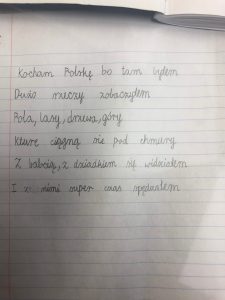 Kocham Polskę bo tam byłem
Dużo rzeczy zobaczyłem
Pola, lasy, drzewa, góry
Kture ciągną się pod chmury
Z babcią, z dziadkiem się widziałem
I z nimi super czas spędzałem